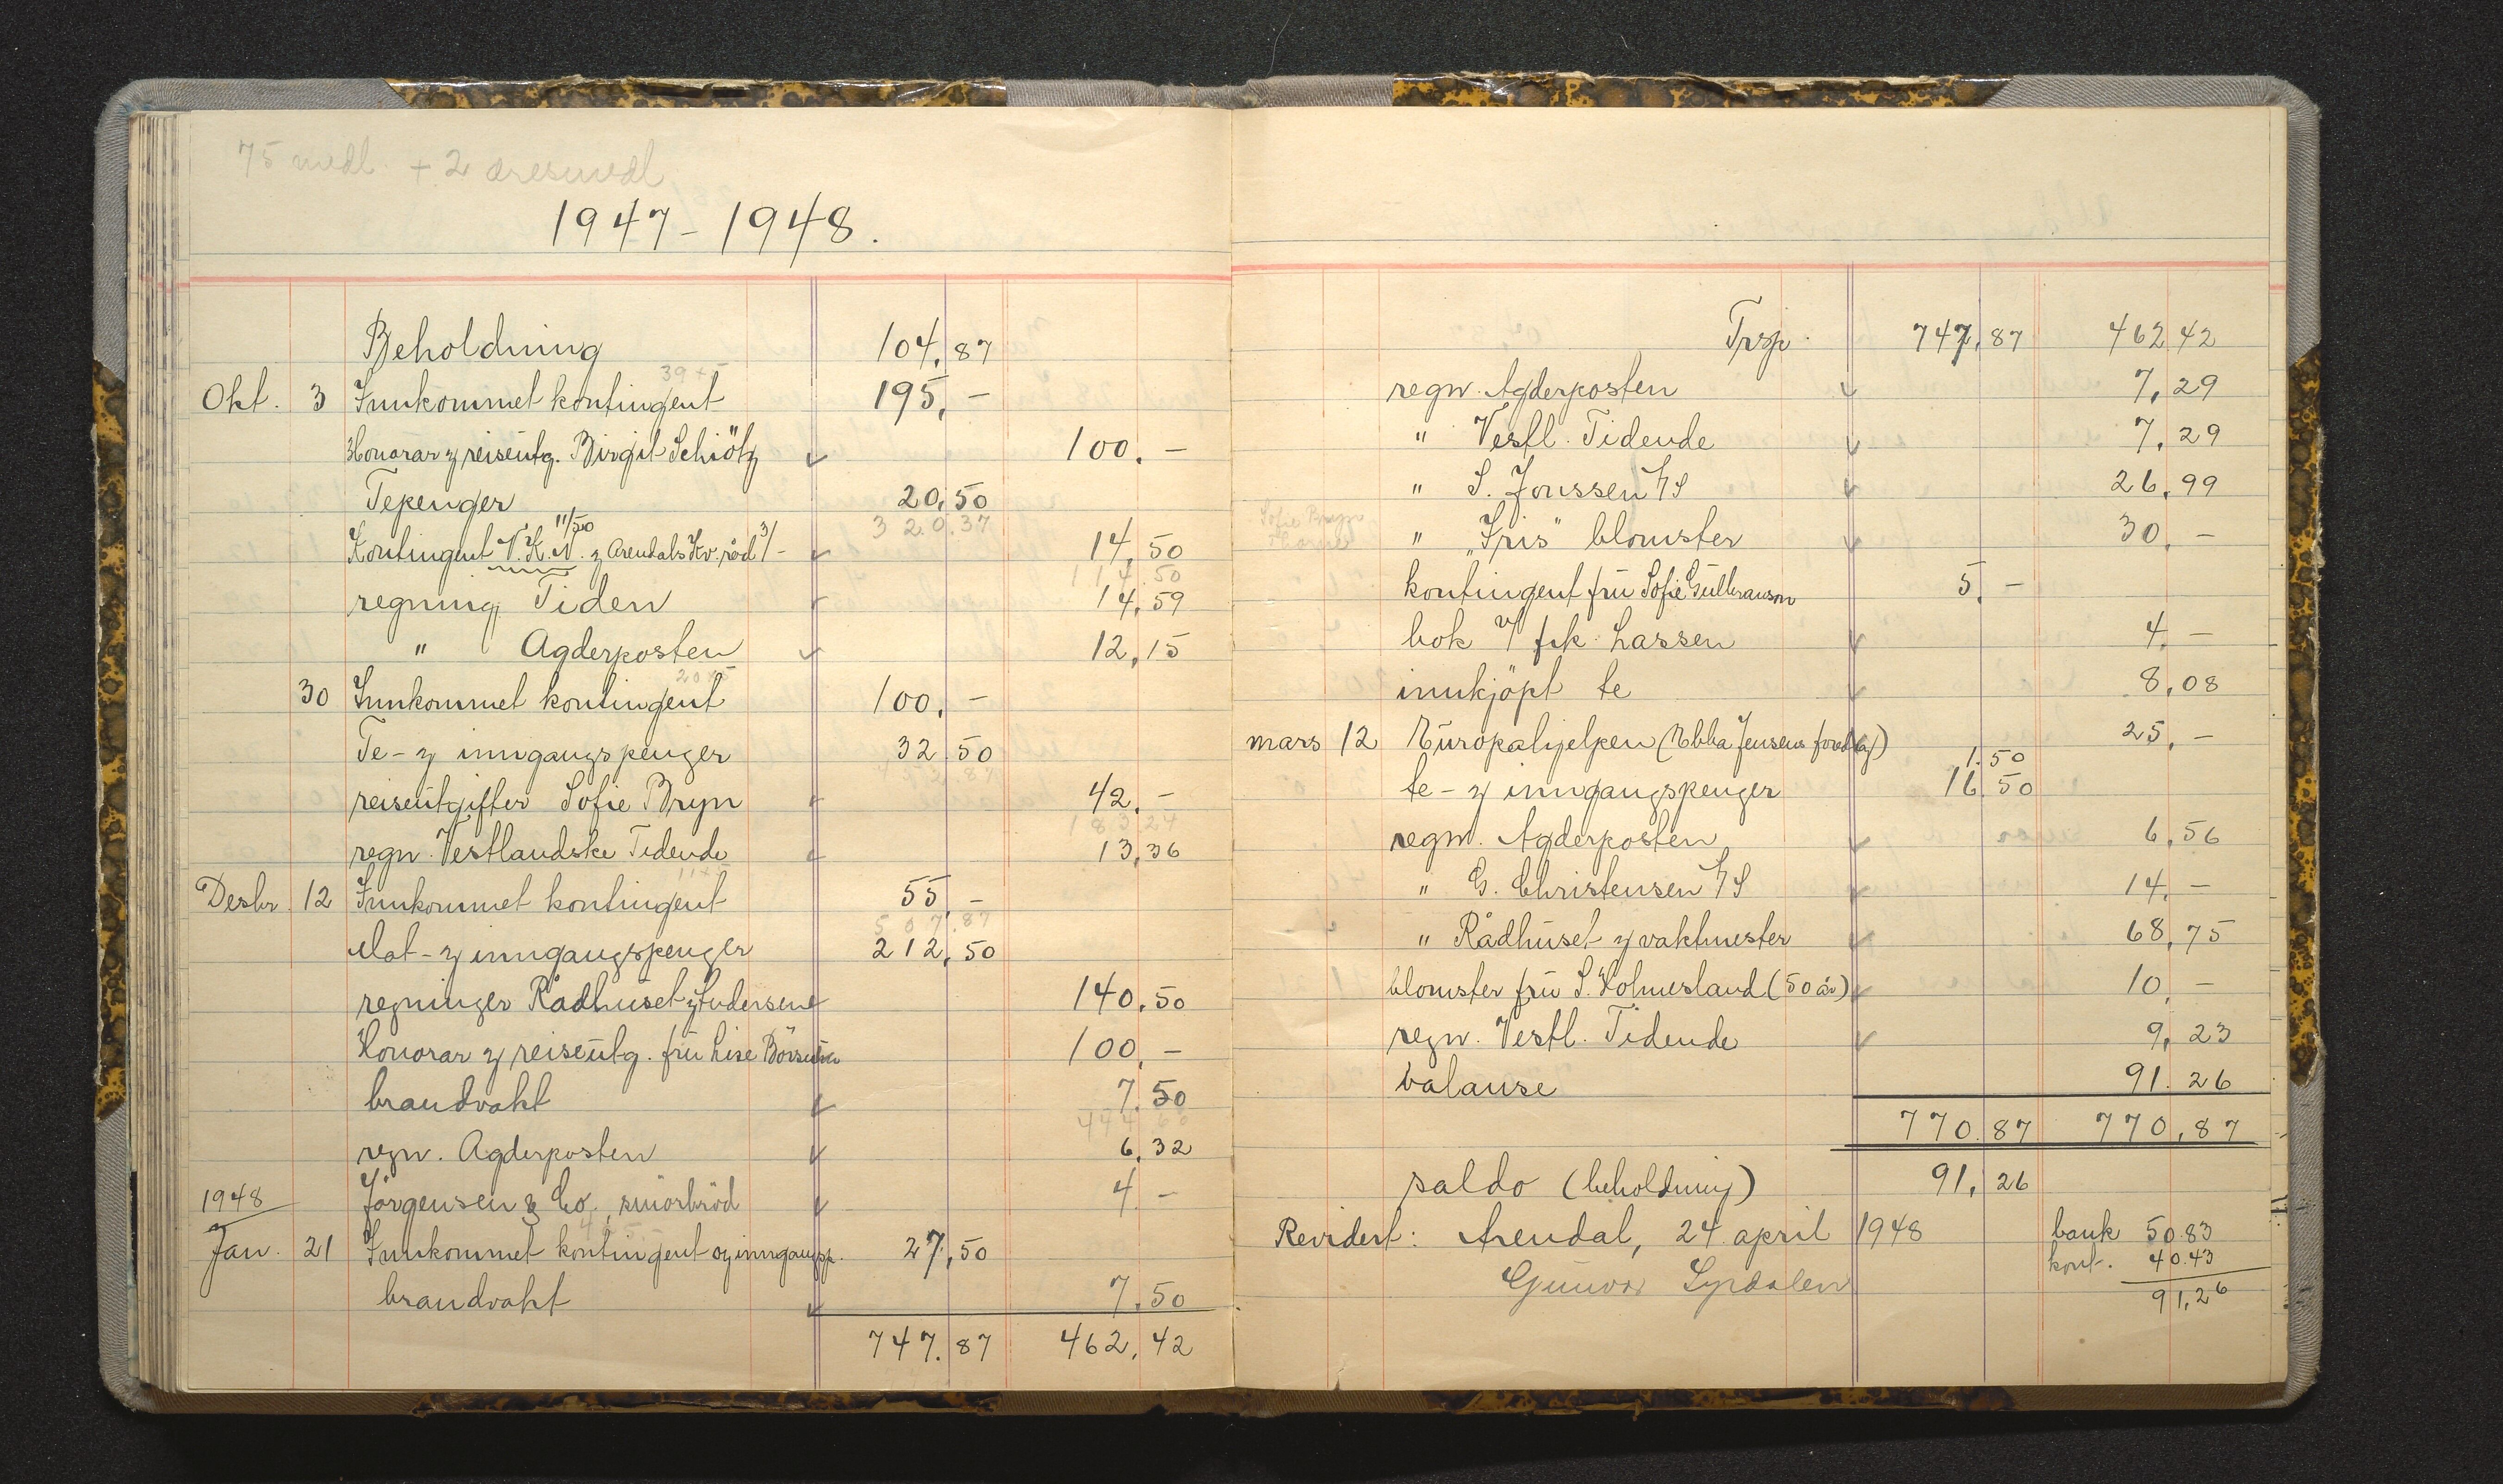 75 medl. + 2 æresmedl.
1947-1948.
Beholdning 104,87
39 x 5
Okt. 3 Innkommet kontingent 195,-
Honorar & reiseutg. Birgit Schiötz 100.-
Tepenger 20,50
320.37
Kontingent N.K.N. 11/50 & Arendals Kv.råd 3/- 14,50
114.50
regning Tiden 14,59
" Agderposten 12,15
20 x 5
30 Innkommet kontingent 100,-
Te- & inngangspenger 32.50
reiseutgifter Sofie Bryn 42.-
183.24
regn. Vestlandske Tidende 13,36
11 x 5
Desbr. 12 Innkommet kontingent 55,-
507.87
Mat- & inngangspenger 212,50
regninger Rådhuset & 140.50
Honorar & reiseutg. frü Lise Börsum 100,-
brandvakt 7.50
444.60
regn. Agderposten 6,32
1948 Jörgensen & Co., smörbröd 4.-
Jan. 21 Innkommet kontingent og inngangsp. 27,50
brandvakt 7.50
747.87 462,42
Trsp. 747,87 462,42
regn. Agderposten 7,29
" Vestl. Tidende 7,29
" S. Jonssen A/S 26,99
Sofie Bryn
" "Iris" blomster 30,-
kontingent frü Sofie Gulbranson 5,-
bok v/ frk. Lassen 4,-
innkjöpt te 8,08
mars 12 Europahjelpen (Ebba Jensens foredrag) 25,-
1.50
te- & inngangspenger 16.50
regn. Agderposten 6,56
" G. Christensen A/S 14,-
" Rådhuset & vaktmester 68,75
blomster frü S. Holmesland (50 år) 10,-
regn. Vestl. Tidende 9,23
balanse 91.26
770.87 770,87
saldo (beholdning) 91,26
Revidert: Arendal, 24 april 1948
bank 50.83
kont. 40.43
91,26
Gunvor Lyndalen